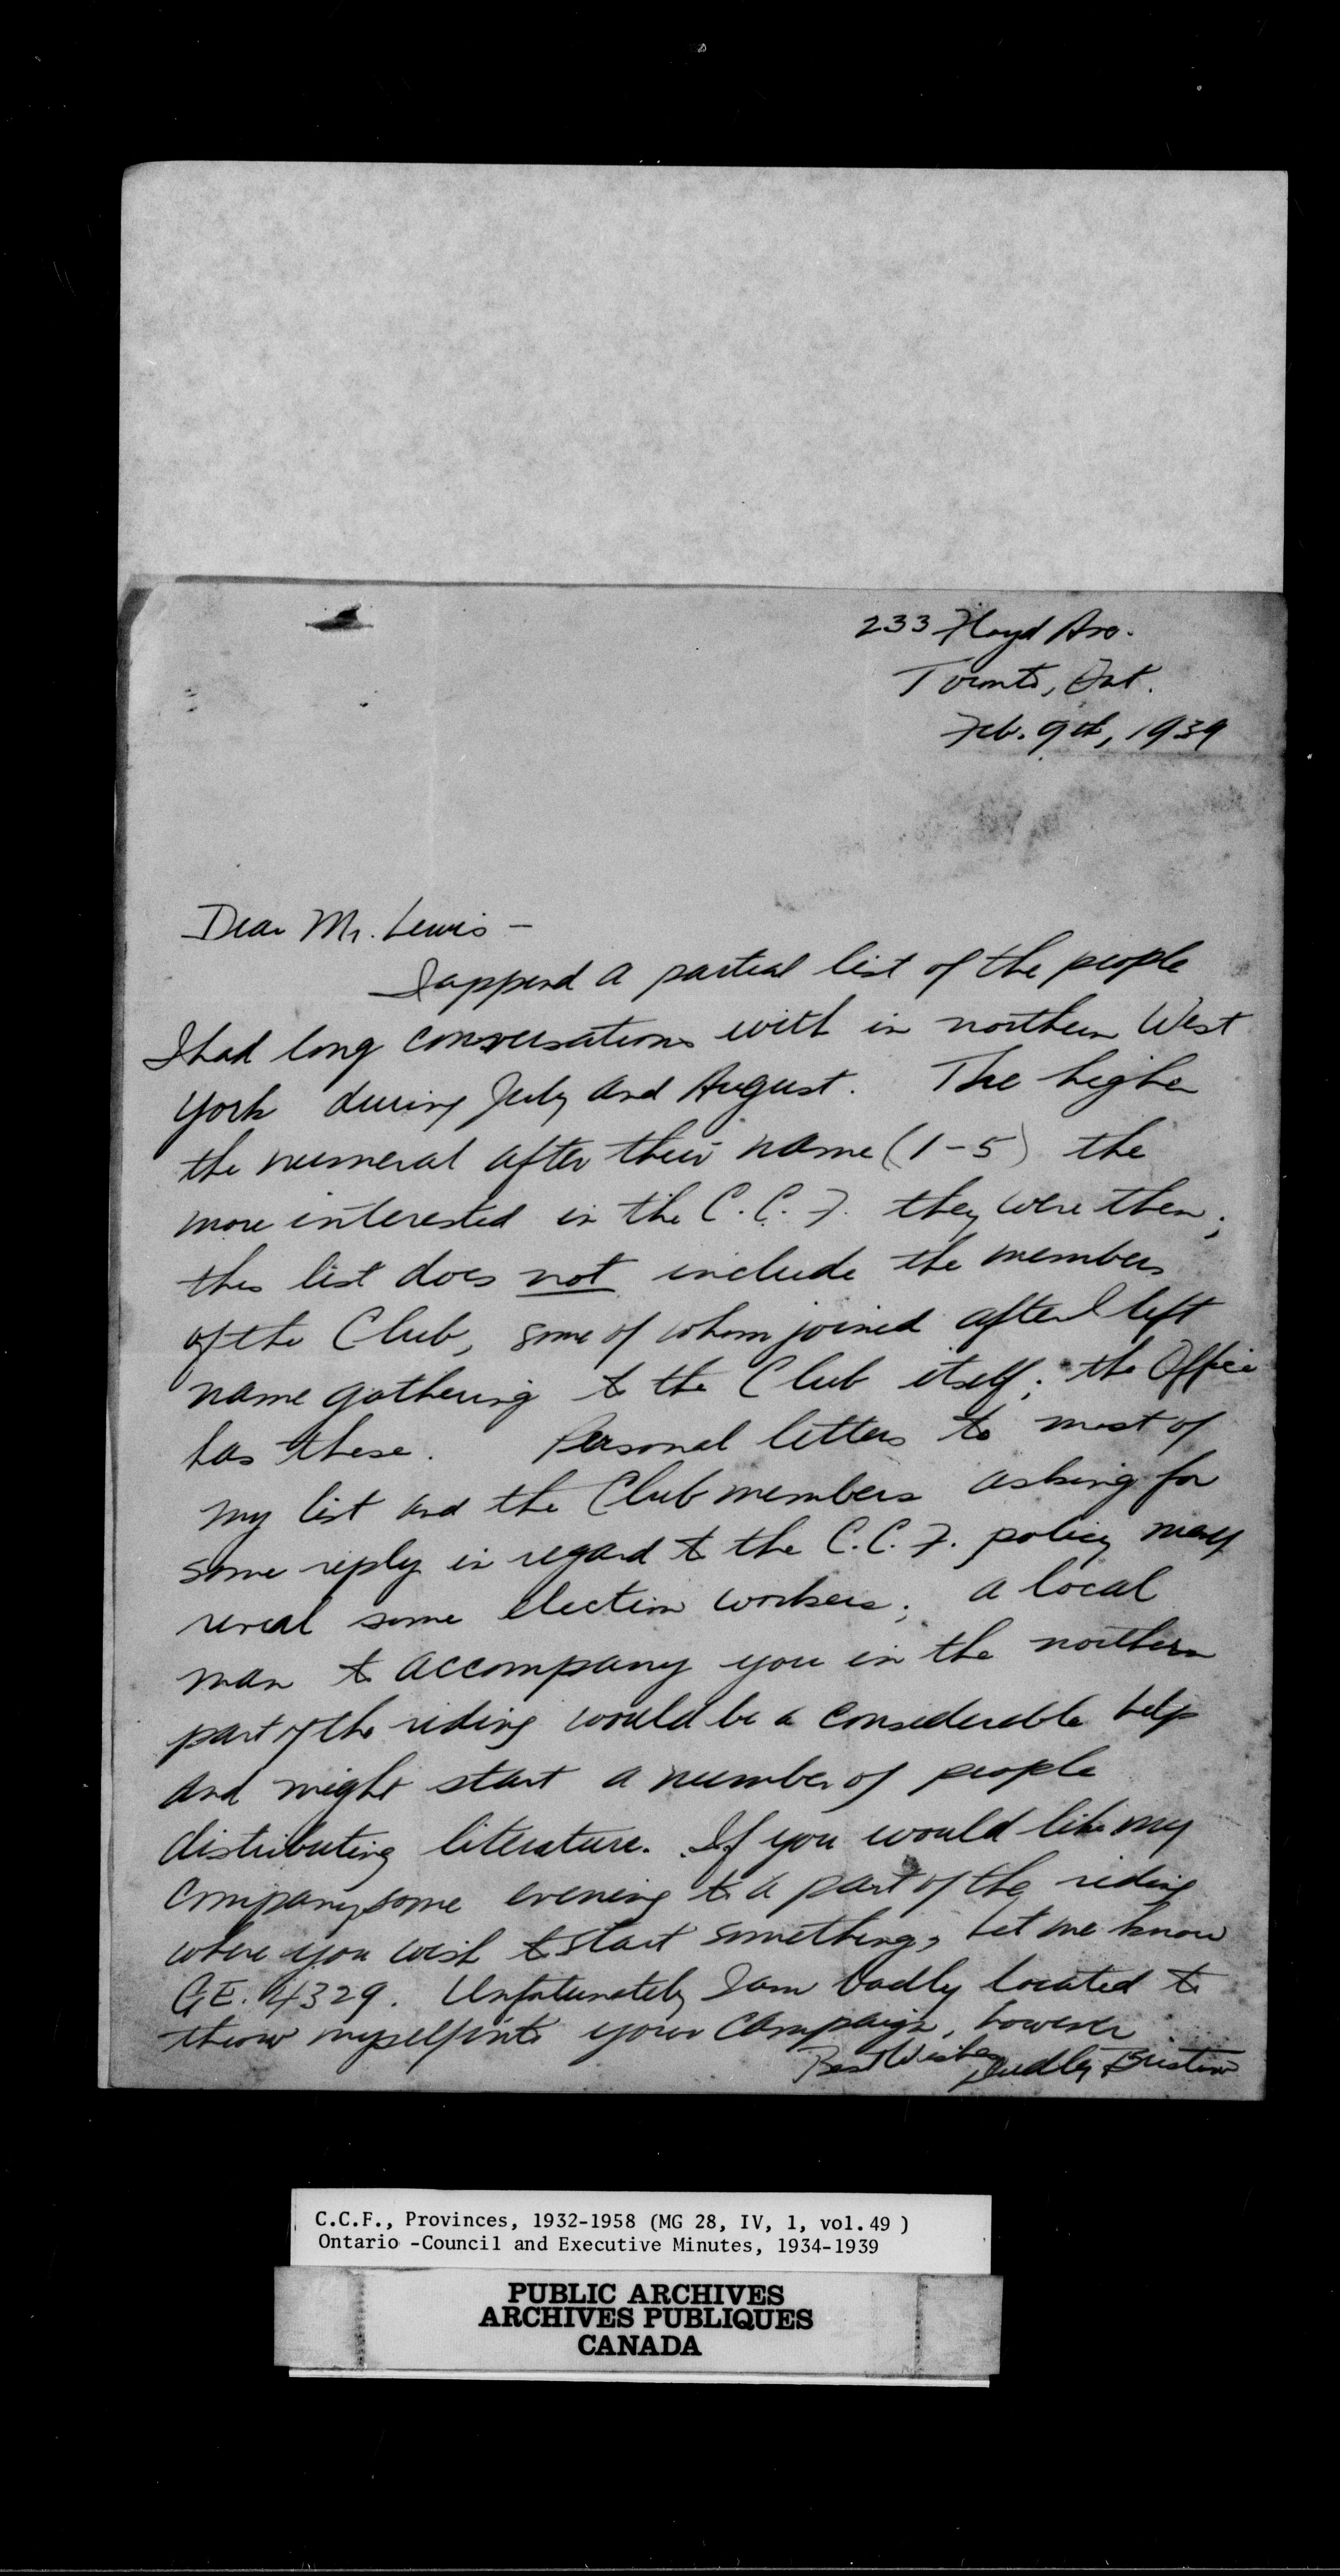 233 Floyd Ave.
Toronto, Ont.
Feb. 9th, 1939
Dear Mr. Lewis -
I append a partial list of the people
I had long conversations with in northern West
York during July and August. The higher
the numeral after their name (1-5) the
more interested in the C.C.F. they were then;
this list does not include the members
of the Club, some of whom joined after I left
name gathering to the Club itself; the Office
has these. Personal letters to most of
my list and the Club members asking for
some reply in regard to the C.C.F. policy may
reveal some election workers; a local
man to accompany you in the northern
part of the riding would be a considerable help
and might start a number of people
distributing literature. If you would like my
company some evening to a part of the riding
where you wish to start something, let me know
GE. 4329. Unfortunately I am badly located to
throw myself into your campaign, however
Best Wishes Dudley Bristow
C.C.F., Provinces, 1932-1958 (MG 28, IV, 1, vol.49 )
Ontario -Council and Executive Minutes, 1934-1939
PUBLIC ARCHIVES
ARCHIVES PUBLIQUES
CANADA